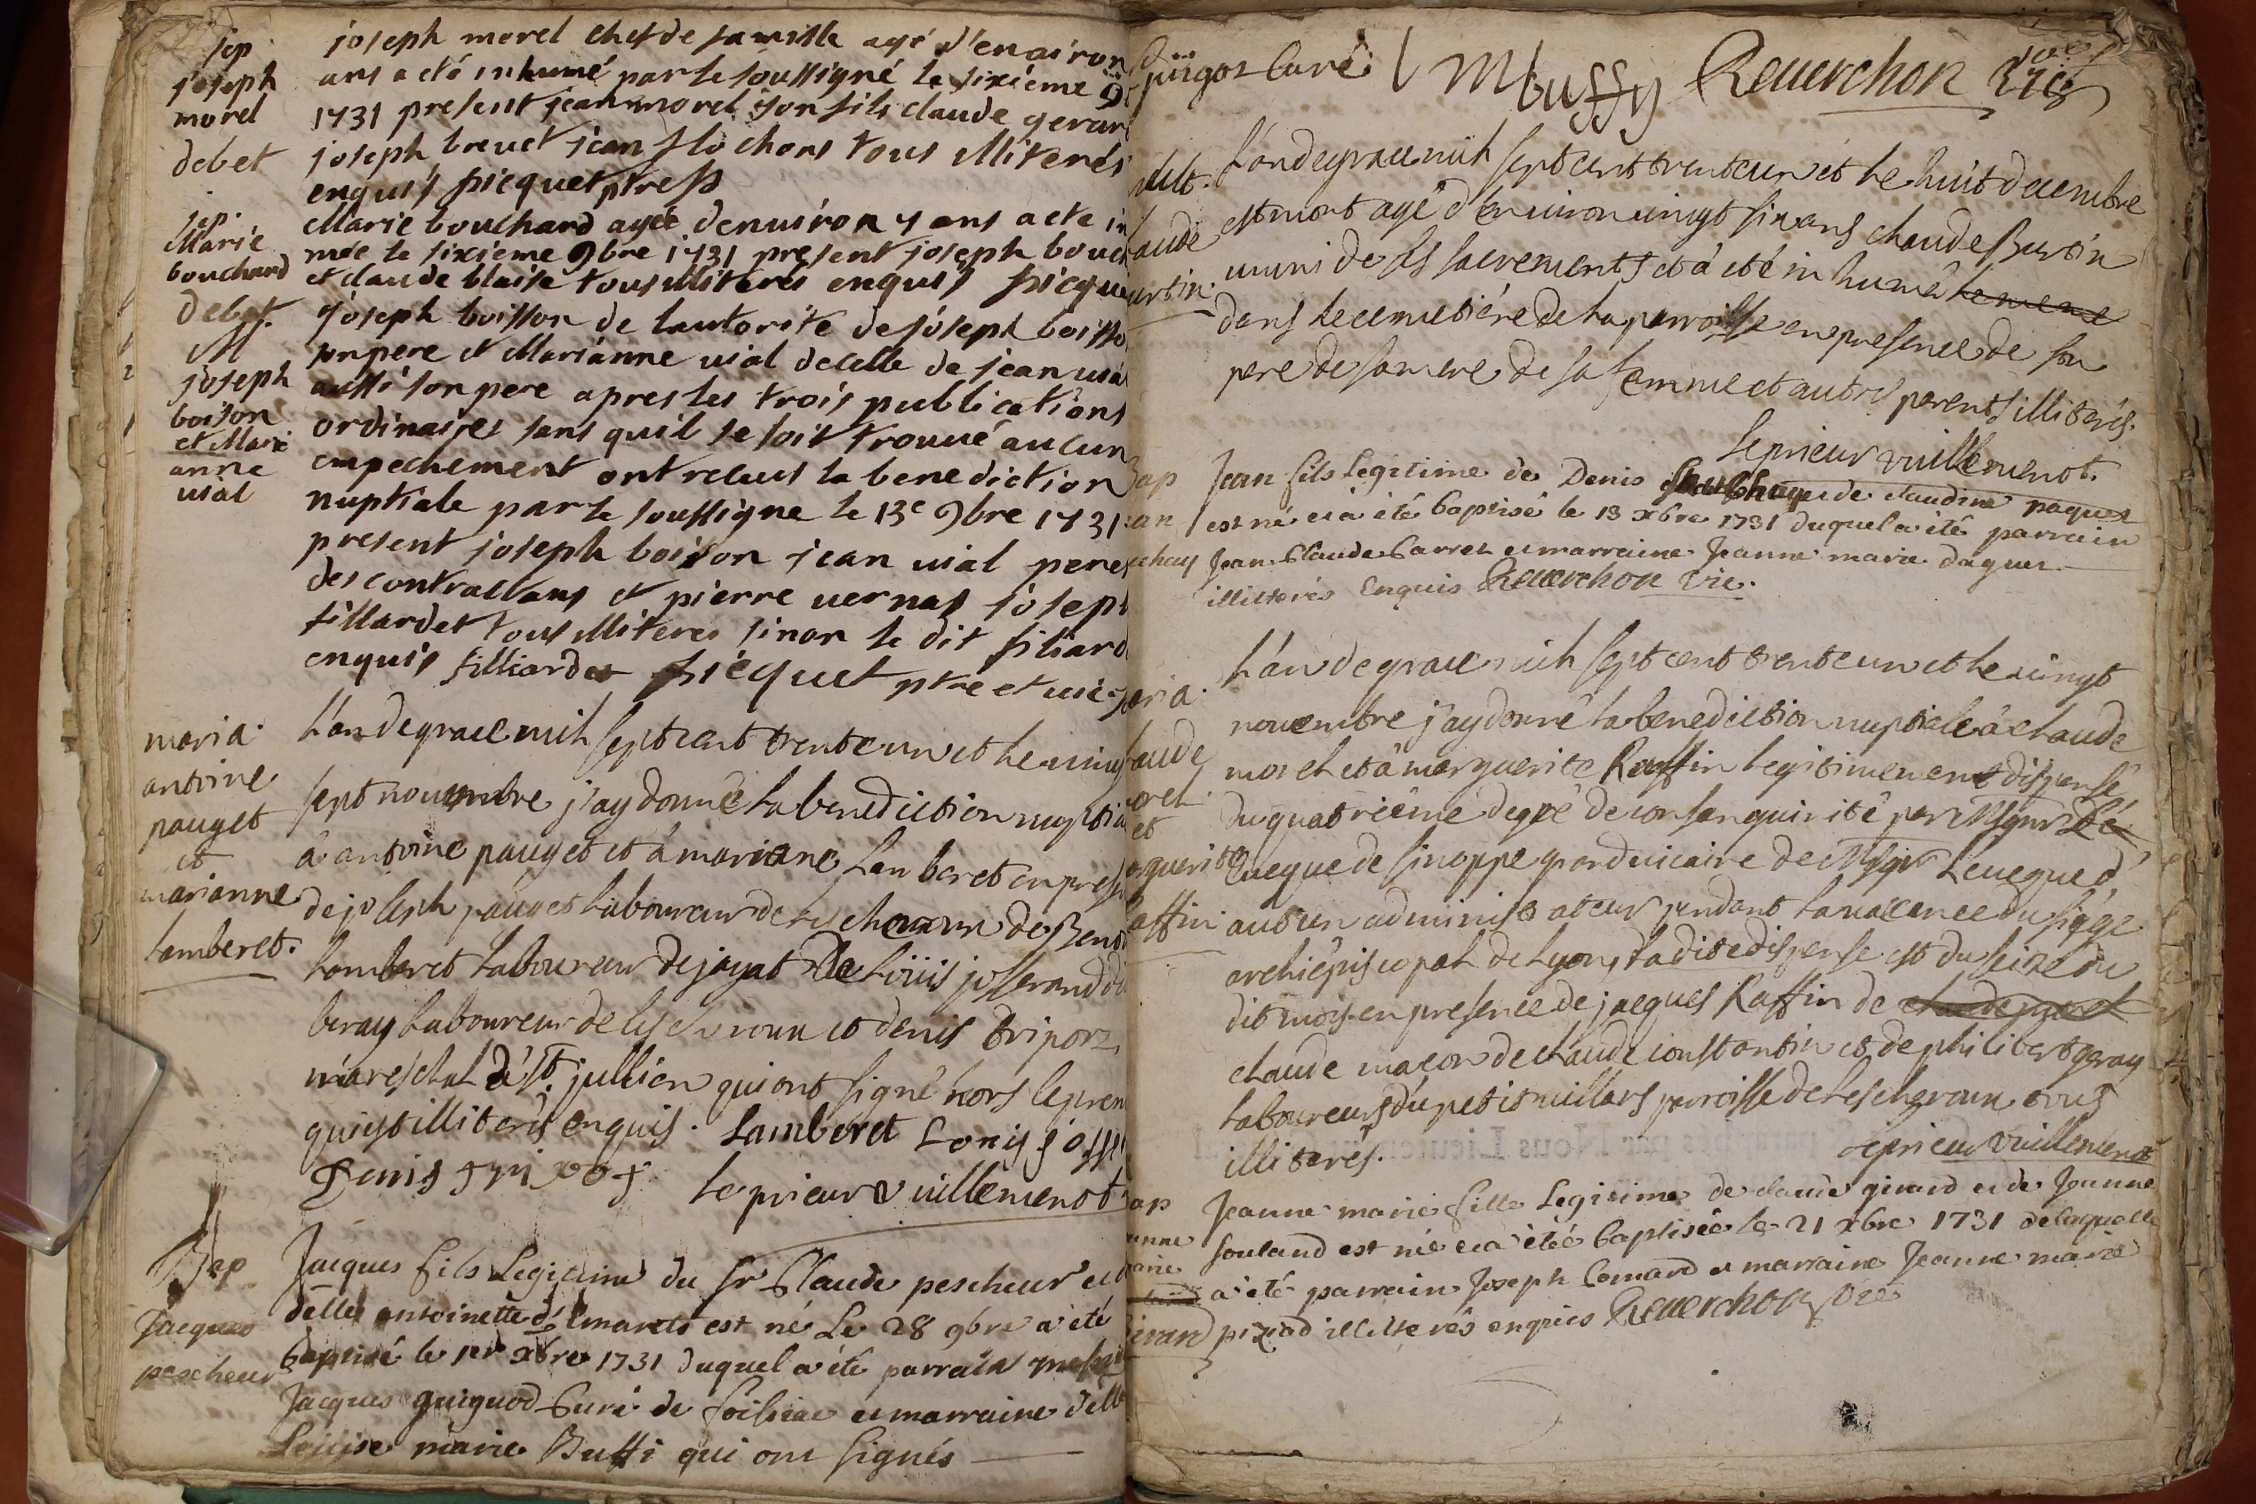 sep.
joseph
morel
debet
joseph morel chef de famille agé d'enuiron
ans a eté inhumé par le soussigné le sixieme 9
1731 present jean morel son fils claude gerar
joseph breuet jean flochon tous illiterés
enquis picquet ptre
sep.
Marie
bouchard
debet.
Marie bouchard agée denuiron 4 ans a ete in
mée le sixieme 9bre 1731 present joseph bouc
et claude blaise tous illiterés enquis picque
M
joseph
boison
et Marie
anne
uial
joseph boisson de lautorite de joseph boisso
son pere et Marianne uial de celle de jean uia
aussi son pere apres les trois publications
ordinaires sans quil se soit trouué aucun
empechement ont recus la benediction
nuptiale par le soussigne le 13e 9bre 1731
present joseph boisson jean uial peres
des contractans et pierre uernas joseph
filliardet tous illiteres sinon le dit filiard
enquis filliardet picquet ptre et uic
maria.
antoine
pauget
et
marianne
lamberet.
L'an de grace mil sept cent trente un et le uingt
sept nouembre j'ay donné la benediction nuptia
à antoine pauget et à mariane Lamberet en prese
de joseph pauget laboureur de lescheroux de Benoi
lamberet laboureur de jayat de loüis josserand du
beray laboureur de lescheroux et denis tripoz
mareschal de st. jullien qui ont signé hors le prem
qui est illiteré enquis. Lamberet Louis joss
Denis tripoz le prieur vuillemenot
Bap
Jacques
pescheur
Jacques fils Legitime du Sr Claude pescheur et d
delle antoinette desmarets est né Le 28 9bre a été
baptisé le 1er xbre 1731 duquel a été parrain messi
Jacques guigod Curé de foissiac et marraine delle
Loüise marie Buffi qui ont signés
guigoz Curé M buffy Reuerchon vic
debt.
laude
urtin.
L'an de grace mil sept cent trente un et le huit decembre
est mort agé d'enuiron uingt six ans claude Burtin
muni de ses sacrements et à eté inhumé le meme
dans le cemetière de la paroisse en presence de son
pere de sa mere de sa femme et autres parents illiterés.
le prieur vuillemenot.
Bap
ean
chay
Jean fils legitime de Denis et de claudine paquet
est né et à été baptisé le 13 xbre 1731 duquel a été parrain
Jean Claude Carrez et marraine Jeanne marie daguer
illiterés Enquis Reuerchon vic.
maria.
laude
orel
et
arguerite
Raffin
L'an de grace mil sept cent trente un et le uingt
nouembre j'ay donné la benediction nuptiale à claude
morel et à marguerite Raffin legitimement dispensé
du quatrième degré de consanguinité par Msgnr
Eueque de sinoppe grand uicaire de Msgr Leueque d'
autun administrateur pendant la uacance du siège
archiépiscopal de Lyon, ladite dispense est du seize du
dit mois en presence de jacques Raffin de claude morel
claude maçon de claude constantin et de philibert geray
laboureurs du petit uillars paroisse de lescheroux tous
illiterés. le prieur vuillemenot
ap
anne
arie
Girard
Jeanne marie fille Legitime de claude girard et de Jeanne
souland est née et a étée baptisée le 21 xbre 1731 de laquelle
a été parrain Joseph Comard et marraine Jeanne marie
piroud illiterés enquis Reuerchon vic